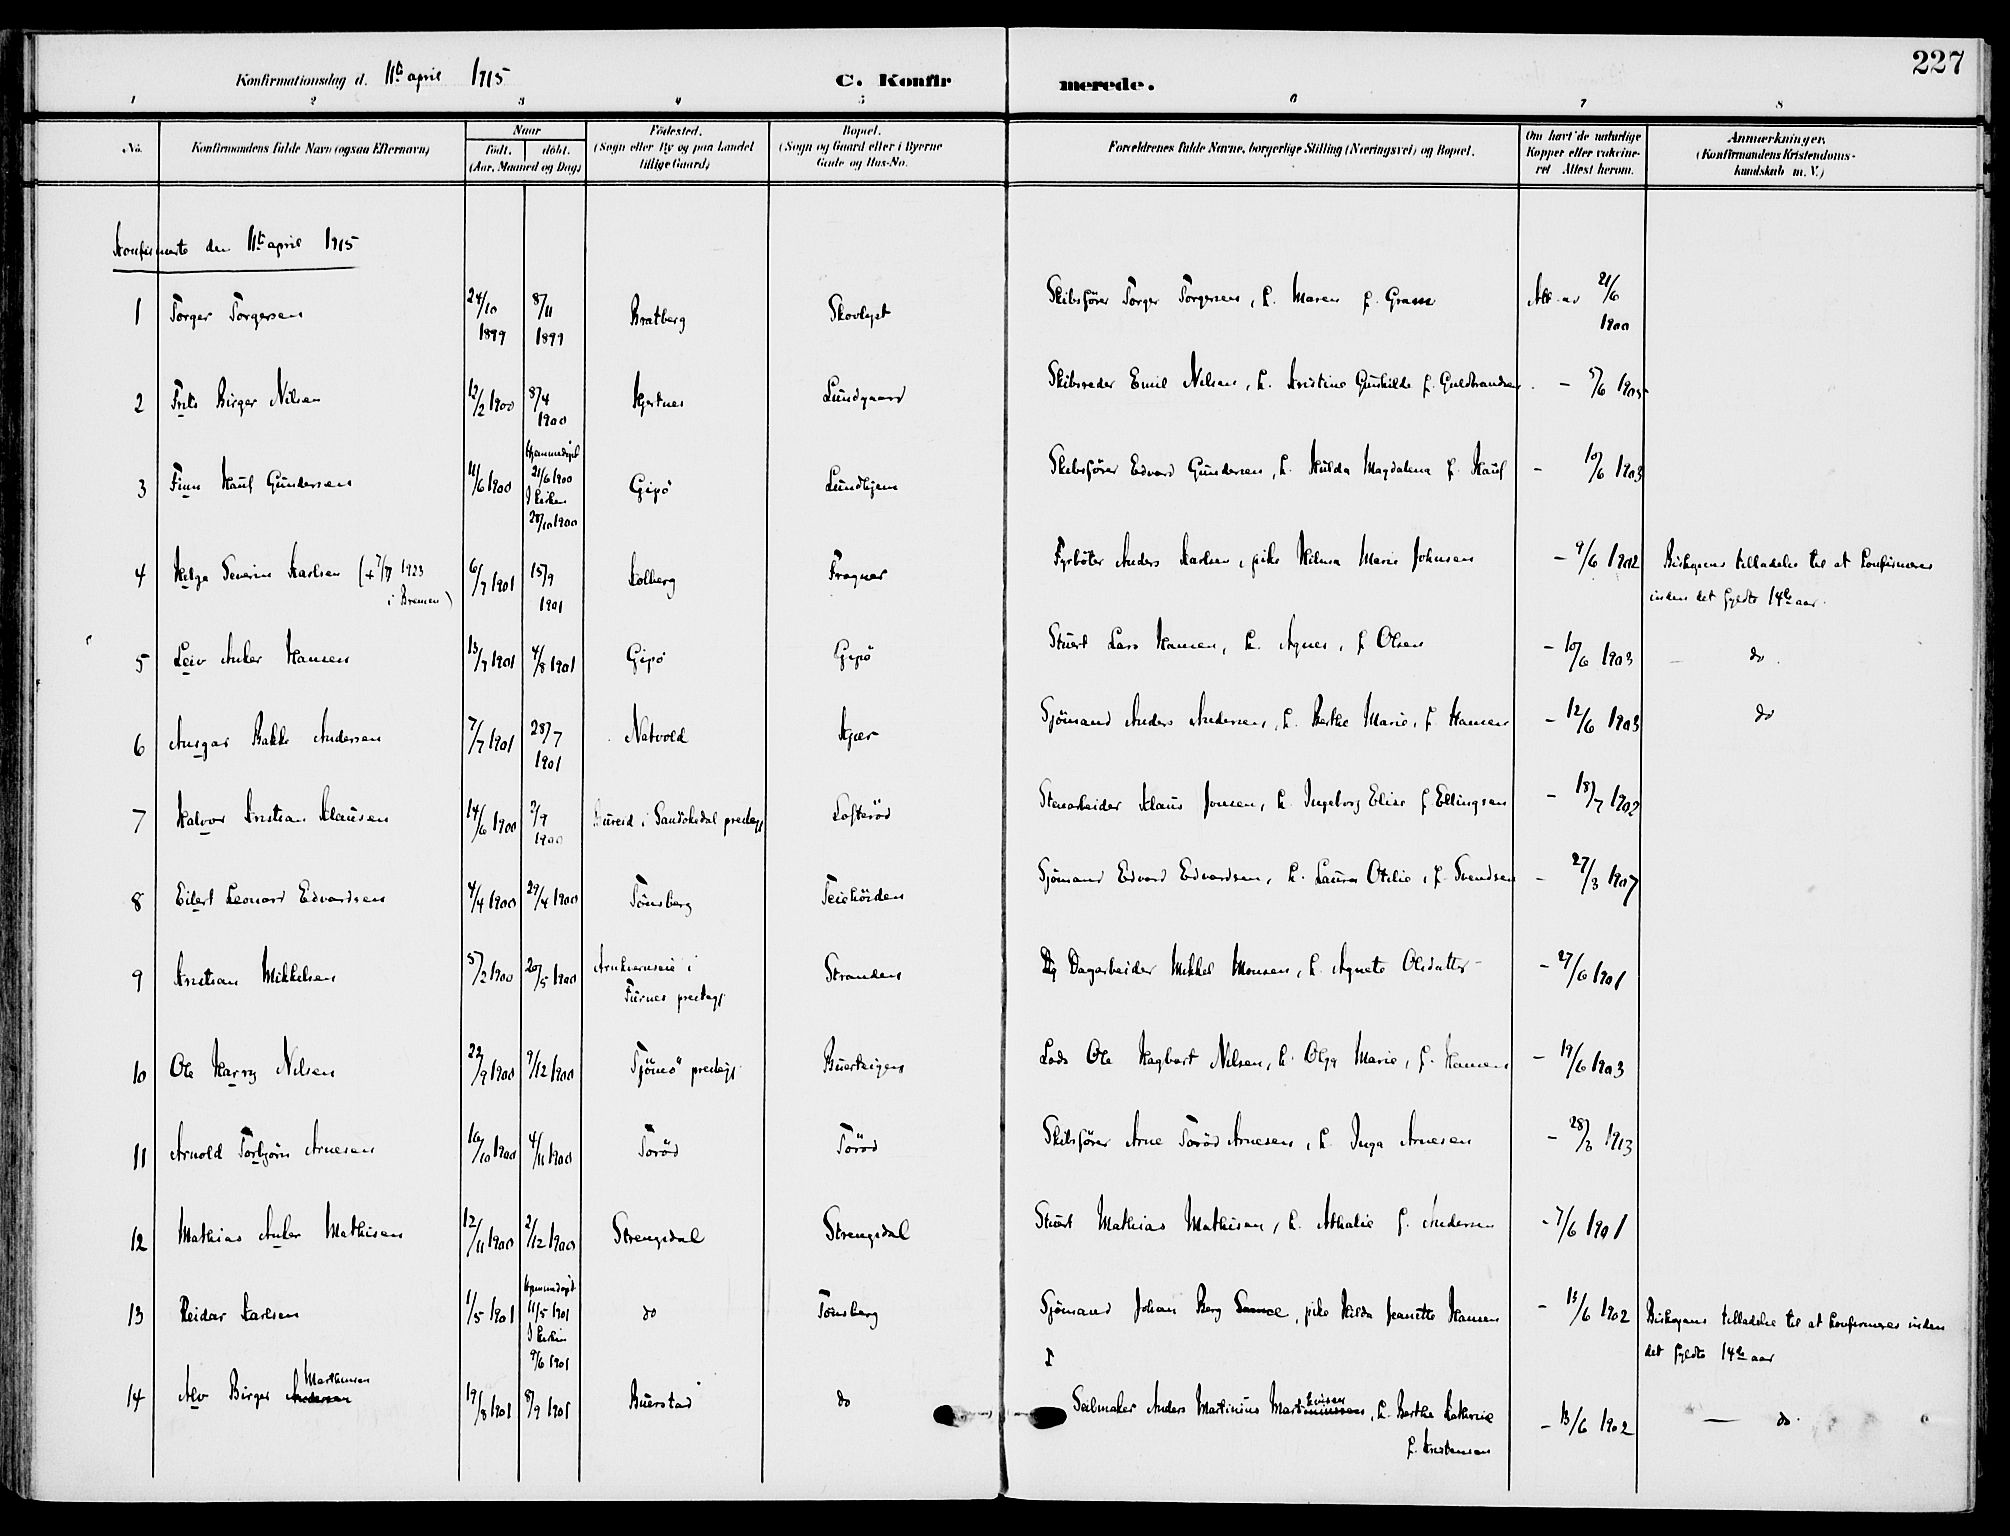 227
Konfirmationsdag d. 11te april 1915
C. Konfirmerede.
1 2 3 4 5 6 7 8
No.
Konfirmandens fulde Navn (ogsaa Efternavn)
Naar
født. døbt.
(Aar, Maaned og Dag)
Fødested.
(Sogn eller By og paa Landet
tillige Gaard)
Bopæl.
(Sogn og Gaard eller i Byerne
Gade og Hus-No.
Forældrenes fulde Navne, borgerlige Stilling (Næringsvei) og Bopæl.
Om havt de naturlige
Kopper eller vakcine-
ret Attest herom.
Anmærkninger.
(Konfirmandens Kristendoms-
kundskab m. V.)
Konfirmerte den 11te april 1915
1 Torger Torgersen 24/10 1899 8/11 1899 Bratberg Skovlyst Skibsfører Torger Torgersen, h. Maren f. Gram Att. av 21/6 1900
2 Frits Birger Nilsen 12/2 1900 8/4 1900 Kjertnes Lundgaard Skibsreder Emil Nilsen, h. Kristine Gunhilde f. Guldbrandsen - 5/6 1905
3 Finn Hauf Gundersen 11/6 1900 Hjemmedøpt 21/6 1900 I kirken 28/10 1900 Gipø Lundhjem Skibsfører Edvard Gundersen, h. Hulda Magdalena f. Hauf - 10/6 1903
4 Helge Severin Karlsen (+ 7/7 1923 i Bremen) 6/7 1901 15/9 1901 Kolberg Fragnar Fyrbøter Anders Karlsen, pike Hilma Marie Johnsen - 9/6 1902 Biskopens tilladelse til at konfirmeres
inden det fyldte 14de aar.
5 Leiv Anker Hansen 13/7 1901 4/8 1901 Gipø Gipø Stuert Lars Hansen, h. Agnes, f. Olsen - 10/6 1903 - do.
6 Ansgar Bakke Andersen 7/7 1901 28/7 1901 Natvold Kjær Sjømand Anders Andersen, h. Berthe Marie, f. Hansen - 12/6 1903 do
7 Halvor Kristian Klausen 14/6 1900 2/9 1900 i Sandøkedal prestegj. Lofterød Stenarbeider Klaus Jonsen, h. Ingeborg Elise f. Ellingsen - 18/7 1902
8 Eilert Leonard Edvardsen 4/4 1900 29/4 1900 Tønsberg Teiehøiden Sjømand Edvard Edvardsen, h. Laura Otilie, f. Svendsen - 27/3 1907
9 Kristian Mikkelsen 5/2 1900 20/5 1900 Arnkvernseie i
Furnes prestegj. Stranden Dagarbeider Mikkel Monsen, h. Agnete Olsdatter - 27/6 1901
10 Ole Harry Nilsen 22/9 1900 9/12 1900 Tjømø prestegj. Buerteigen Lods Ole Hagbart Nilsen, h. Olga Marie, f. Hansen - 19/6 1903
11 Arnold Torbjørn Arnesen 16/10 1900 4/11 1900 Torød Torød Skibsfører Arne Torød Arnesen, h. Inga Arnesen - 28/3 1913
12 Mathias Anker Mathisen 12/11 1900 2/12 1900 Strengsdal Strengsdal Stuert Mathias Mathisen, h. Athalie f. Andersen - 7/6 1901
13 Reidar Karlsen 1/5 1901 Hjemmedøpt 11/5 1901 I kirken 9/6 1901 do Tønsberg Sjømand Johan Berg, pike Hilda Jeanette Hansen - 13/6 1902 Biskopens tilladelse til at konfirmeres inden
det fyldte 14de aar
14 Alv Birger Andersen Marthinsen 19/8 1901 8/9 1901 Buerstad do Seilmaker Anders Martinius Martinsen, h. Berthe Kathrine
f. Kristensen - 13/6 1902 - do.